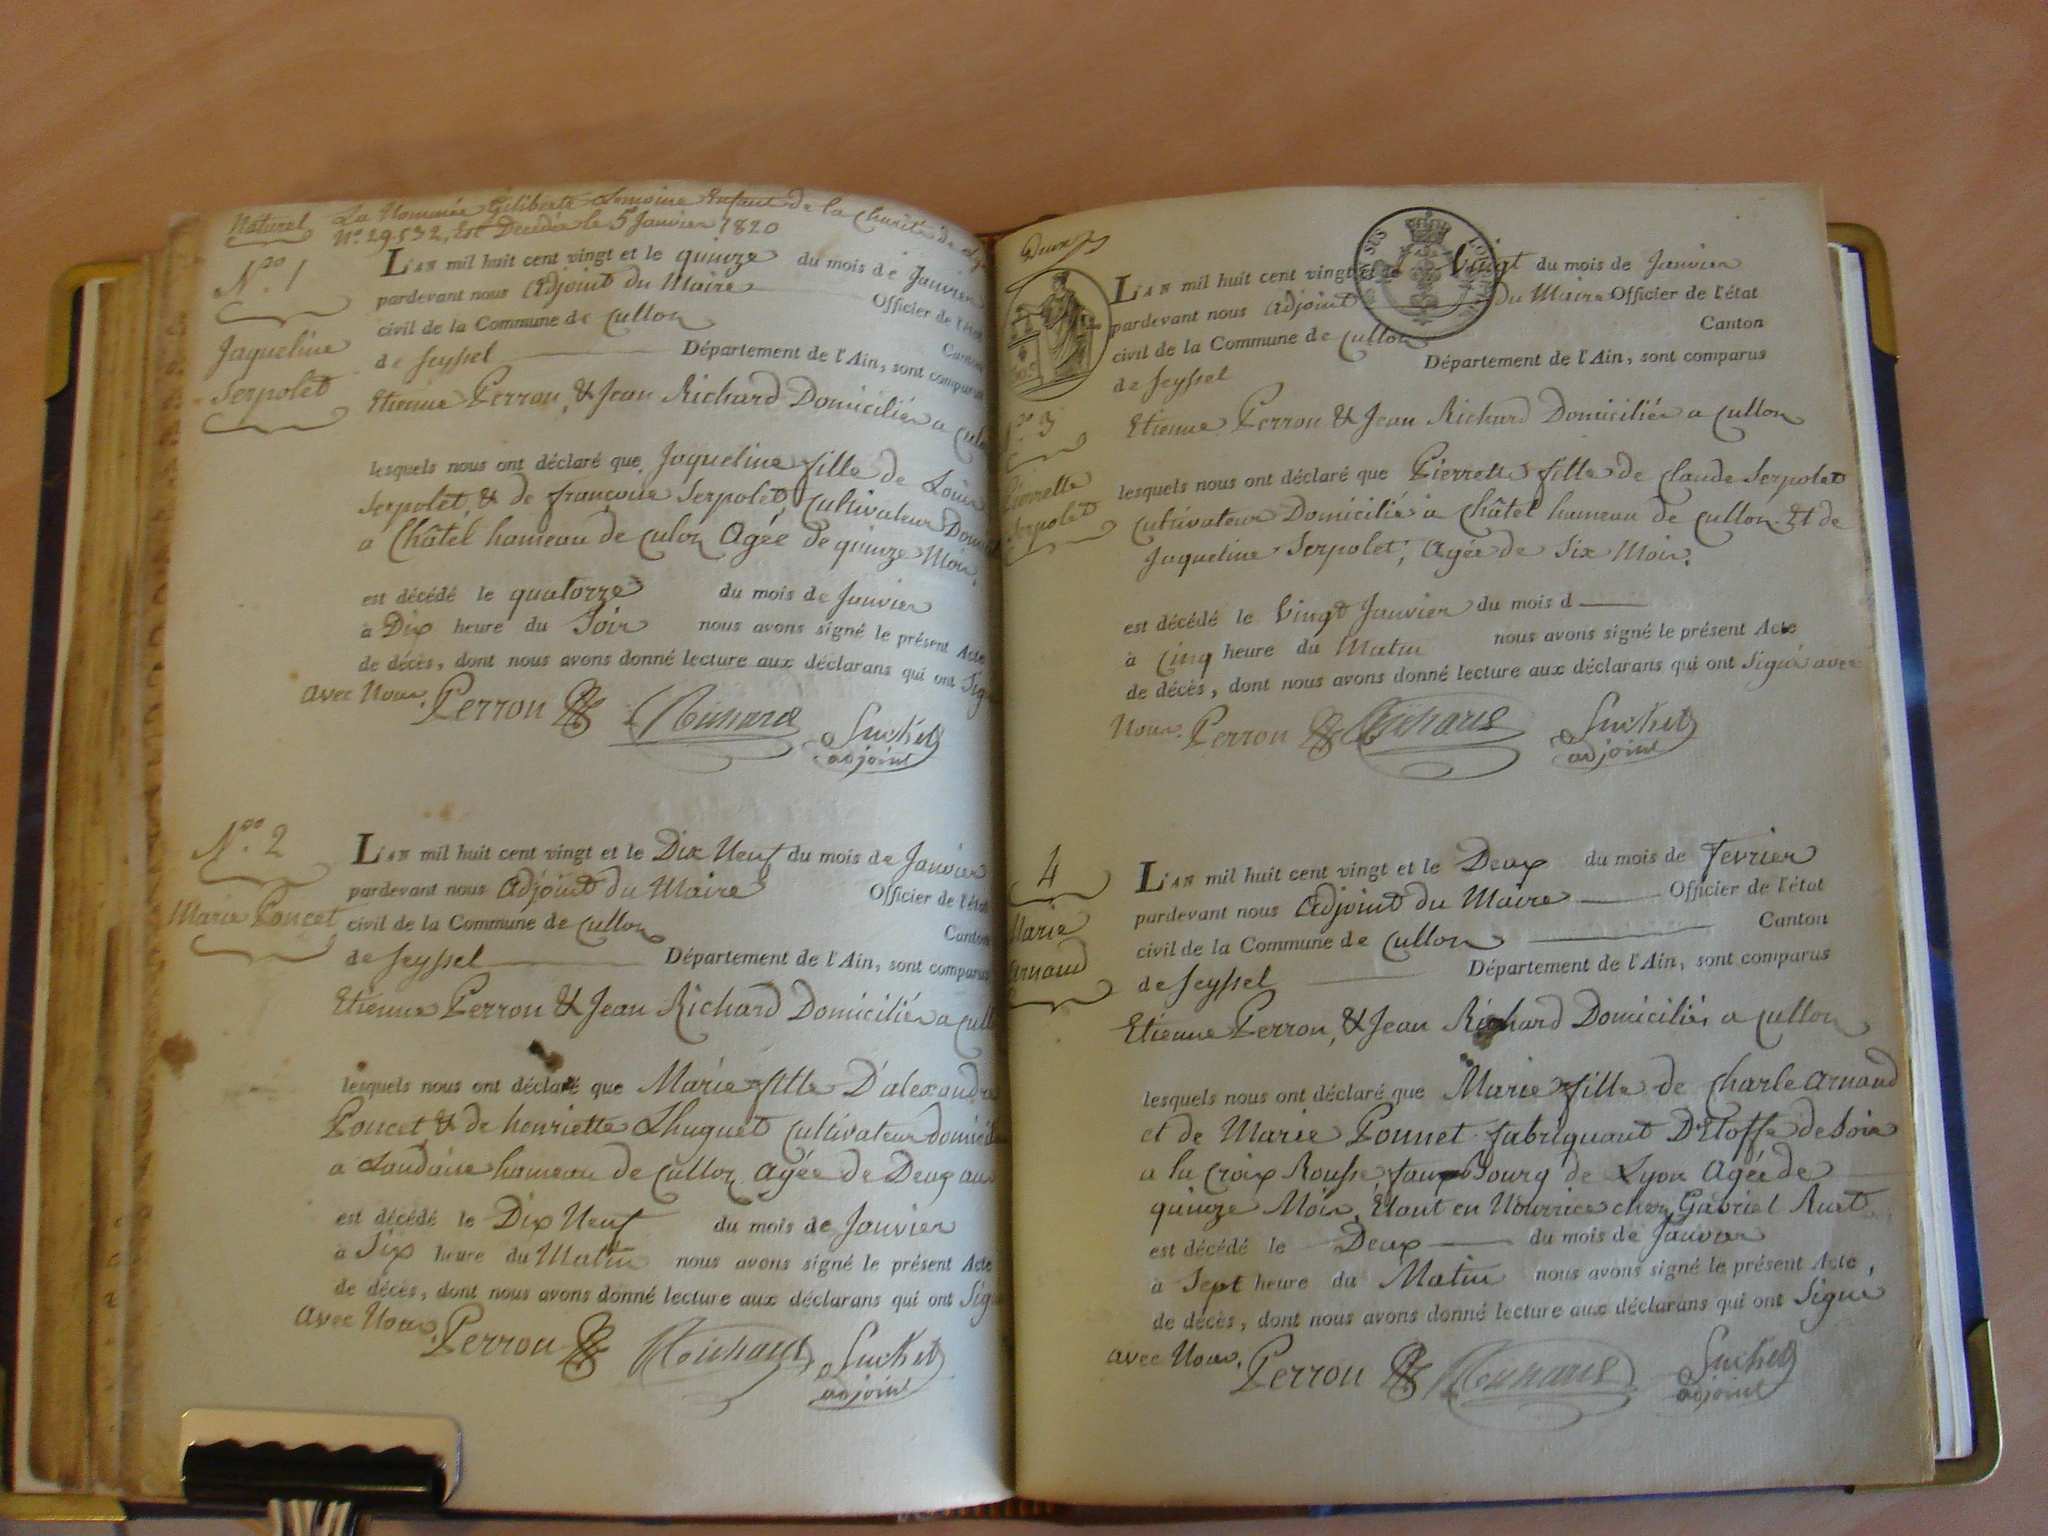 Naturel La Nommée Giliberte Lemoine Enfant de la Charité de
N.º 29.532, Est Decedée le 5 Janvier 1820
N.º 1
Jaqueline
Serpolet
L'AN mil huit cent vingt et le quinze du mois de Janvier
pardevant nous Adjoint du Maire Officier de l'état
civil de la Commune de Cullon Canton
de Seyssel Département de l'Ain, sont comparus
Etienne Perron, & Jean Richard Domiciliés a
lesquels nous ont déclaré que Jaqueline fille de Louis
Serpolet, & de françoise Serpolet, Cultivateur
a Châtel hameau de Culon Agée de quinze Mois.
est décédé le quatorze du mois de Janvier
à Dix heure du Soir nous avons signé le présent Acte
de décès, dont nous avons donné lecture aux déclarans qui ont
avec Nous. Perron Richard Suchet
adjoint
N.º 2
Marie Poncet
L'AN mil huit cent vingt et le Dix Neuf du mois de Janvier
pardevant nous Adjoint du Maire Officier de l'état
civil de la Commune de Cullon Canton
de Seyssel Département de l'Ain, sont comparus
Etienne Perron & Jean Richard Domiciliés a
lesquels nous ont déclaré que Marie fille D'alexandre
Poncet & de henriette Lhuguet Cultivateur
a Landaise hameau de Cullon Agée de Deux ans
est décédé le Dix Neuf du mois de Janvier
à Six heure du Matin nous avons signé le présent Acte
de décès, dont nous avons donné lecture aux déclarans qui ont
avec Nous. Perron Richard Suchet
adjoint
Deux
L'AN mil huit cent vingt et le Vingt du mois de Janvier
pardevant nous Adjoint du Maire Officier de l'état
civil de la Commune de Cullon Canton
de Seyssel Département de l'Ain, sont comparus
N.º 3
Pierrette
Serpolet
Etienne Perron & Jean Richard Domiciliés a Cullon
lesquels nous ont déclaré que Pierrette fille de Claude Serpolet
Cultivateur Domicilié a Châtel hameau de Cullon Et de
Jaqueline Serpolet, Agée de Six Mois.
est décédé le Vingt Janvier du mois d
à Cinq heure du Matin nous avons signé le présent Acte
de décès, dont nous avons donné lecture aux déclarans qui ont Signé avec
Nous. Perron Richard Suchet
adjoint
4
Marie
Arnaud
L'AN mil huit cent vingt et le Deux du mois de Fevrier
pardevant nous Adjoint du Maire Officier de l'état
civil de la Commune de Cullon Canton
de Seyssel Département de l'Ain, sont comparus
Etienne Perron, & Jean Richard Domiciliés a Cullon
lesquels nous ont déclaré que Marie fille de Charle Arnaud
et de Marie Ponnet fabriquant D'Etoffe de Soie
a la Croix Rousse, faux Bourg de Lyon Agée de
quinze Mois, Etant en Nourrice chez Gabriel Ruet
est décédé le Deux du mois de Janvier
à Sept heure du Matin nous avons signé le présent Acte,
de décès, dont nous avons donné lecture aux déclarans qui ont Signé
avec Nous. Perron Richard Suchet
adjoint